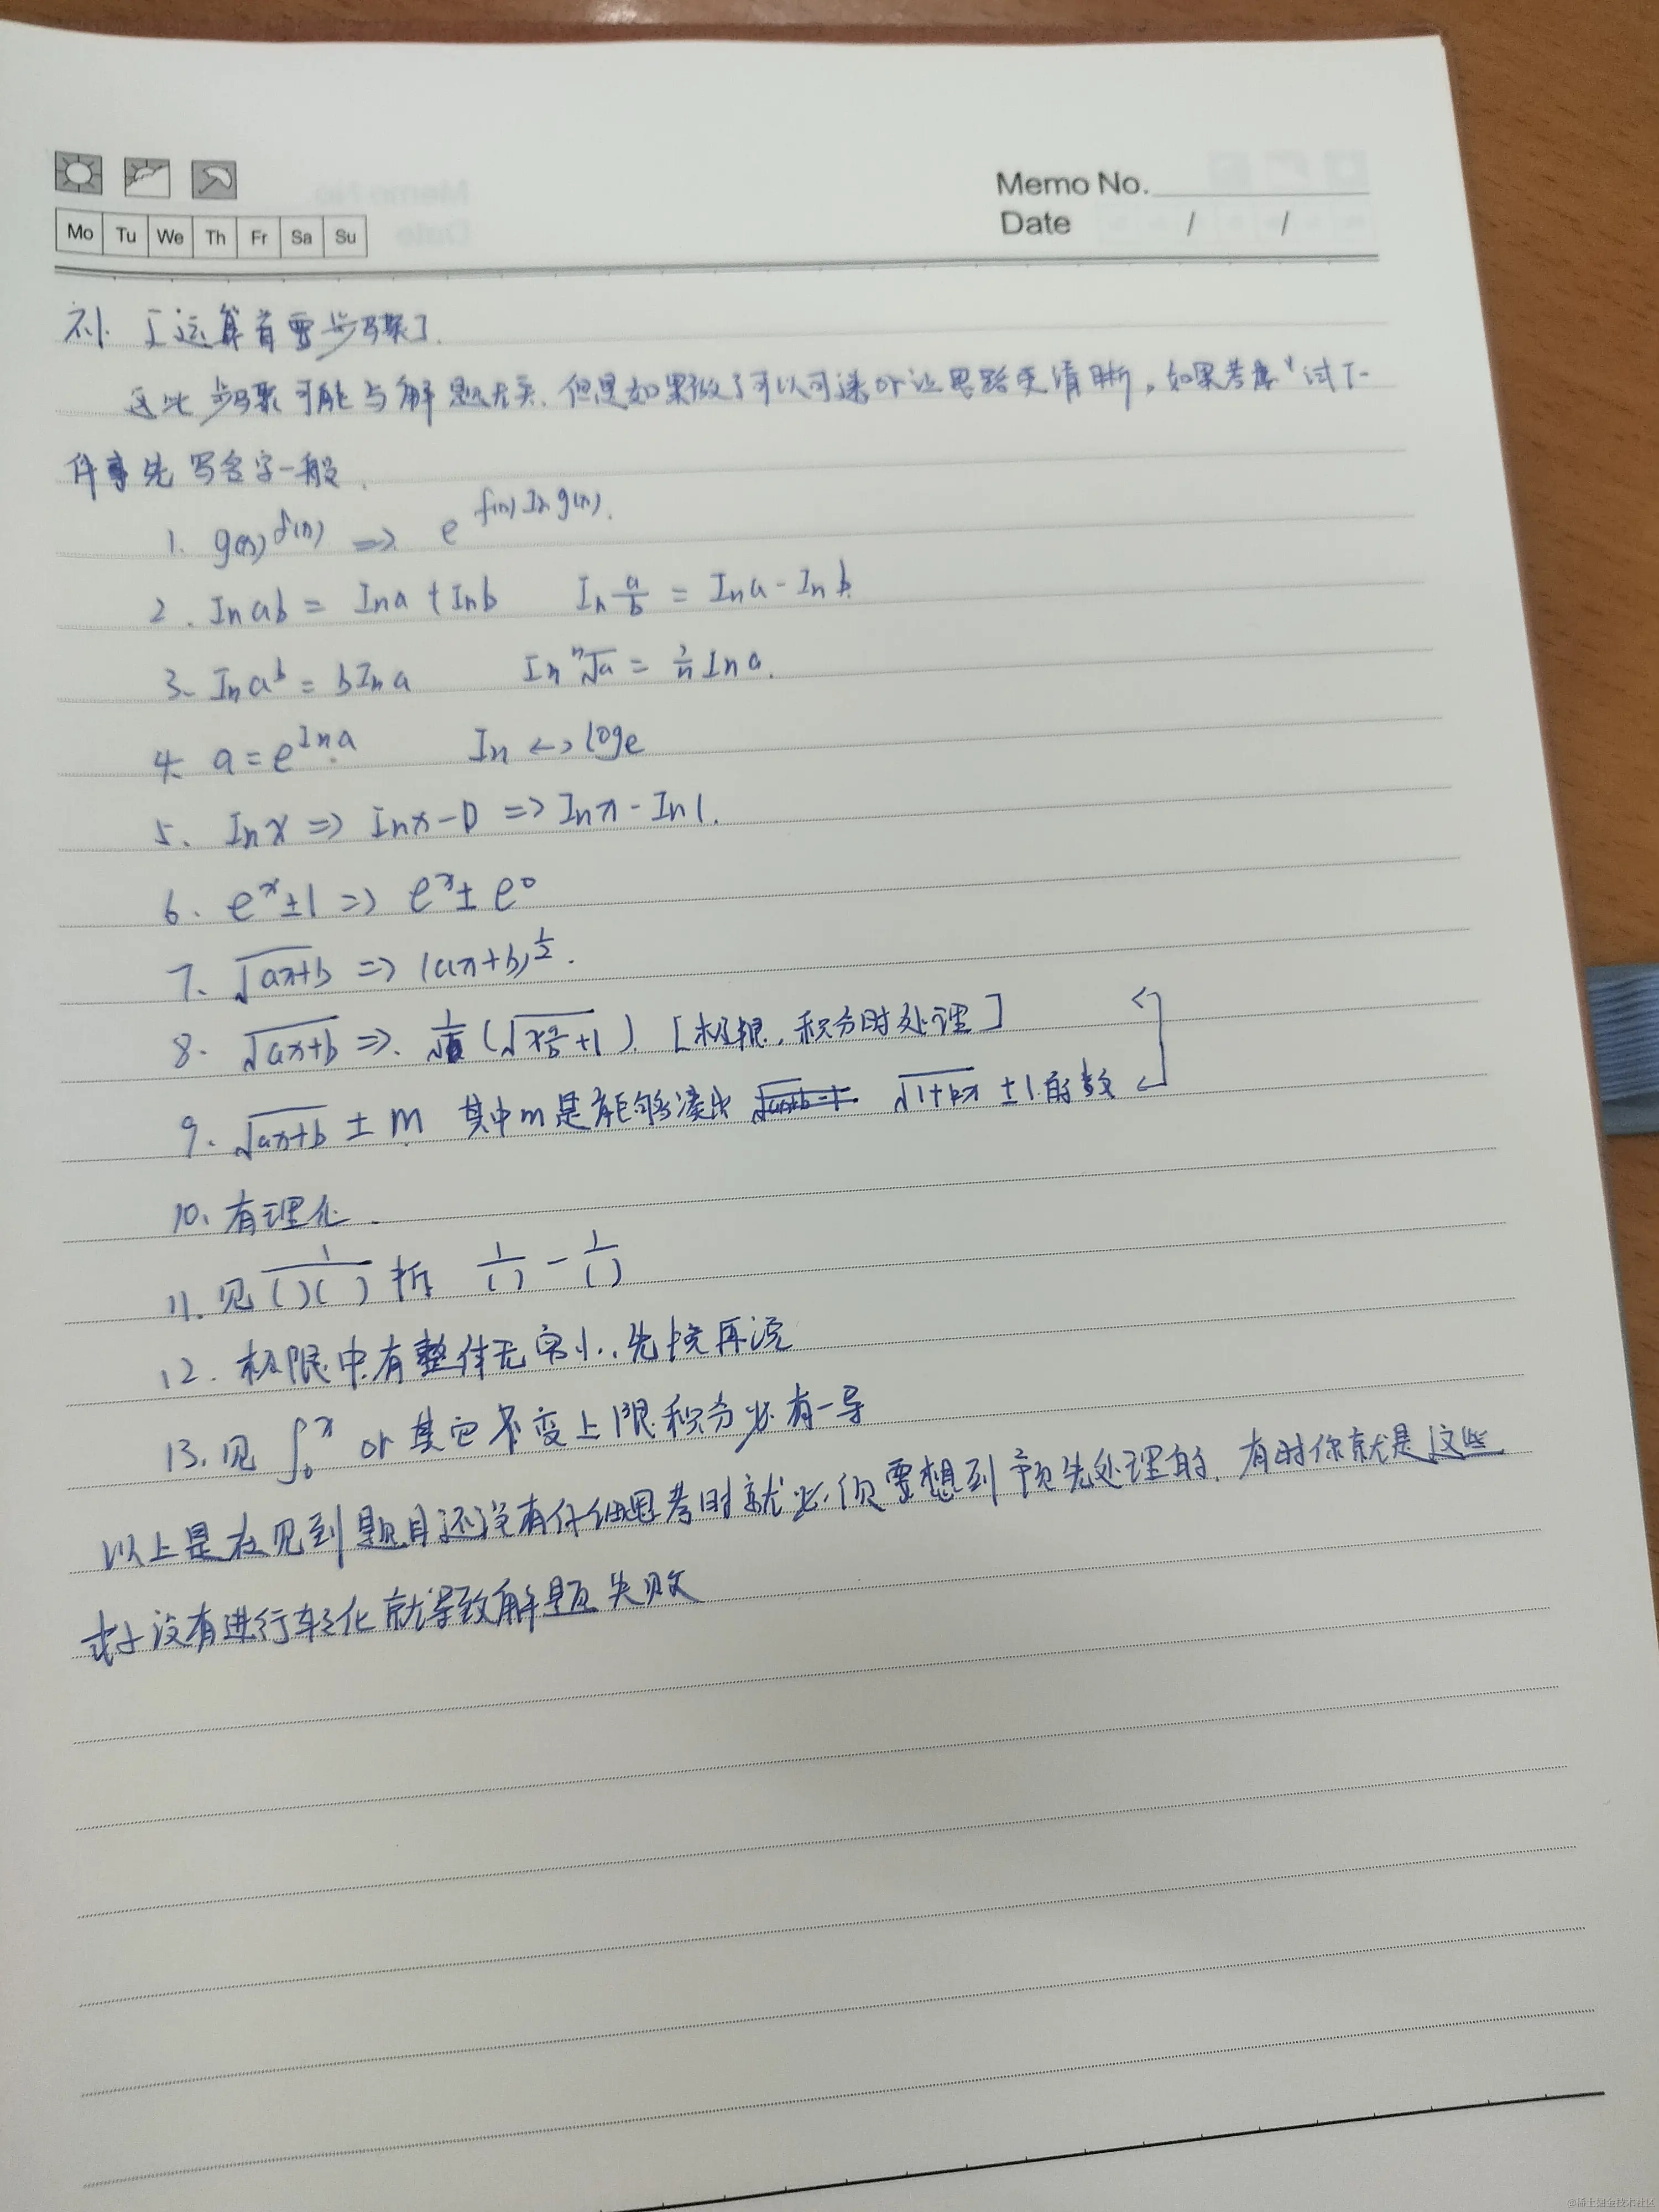 Memo No.
Mo Tu We Th Fr Sa Su
Date / /
补. 【运算首要步骤】.
这些步骤可能与解题无关. 但是如果做了可以可 or 让思路更清晰, 如果考虑
件事先写名字一般.
1. g(x)^f(x) => e^f(x)Ing(x).
2. Inab = Ina + Inb In a/b = Ina - Inb.
3. Ina^b = bIna In ⁿ√a = 1/n Ina.
4. a = e^Ina In <-> loge
5. Inx => Inx - 0 => Inx - In1.
6. e^x ± 1 => e^x ± e^0
7. √(ax+b) => (ax+b)^1/2.
8. √(ax+b) => [极限, 积分时处理]
9. √(ax+b) ± m 其中m是能够凑出 √(1+kx) ± 1的数
10. 有理化.
11. 见 1/( )( ) 拆 1/( ) - 1/( )
12. 极限中有整体无穷小, 先换再说
13. 见 ∫₀ˣ or 其它变上限积分必有一导
以上是在见到题目还没有仔细思考时就必须要想到预先处理的, 有时你就是这些
式子没有进行转化就导致解题失败
@稀土掘金技术社区